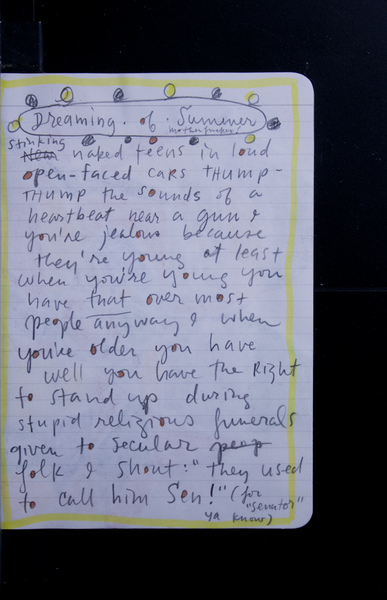 Dreaming of Summer
motherfucker!
stinking
naked teens in loud
open-faced cars THUMP-
THUMP the sounds of a
heartbeat near a gun &
you're jealous because
they're young at least
when you're young you
have that over most
people anyway & when
you're older you have
well you have the Right
to stand up during
stupid religious funerals
given to secular peop
folk & shout: "they used
to call him Sen!" (for
"senator"
ya know)